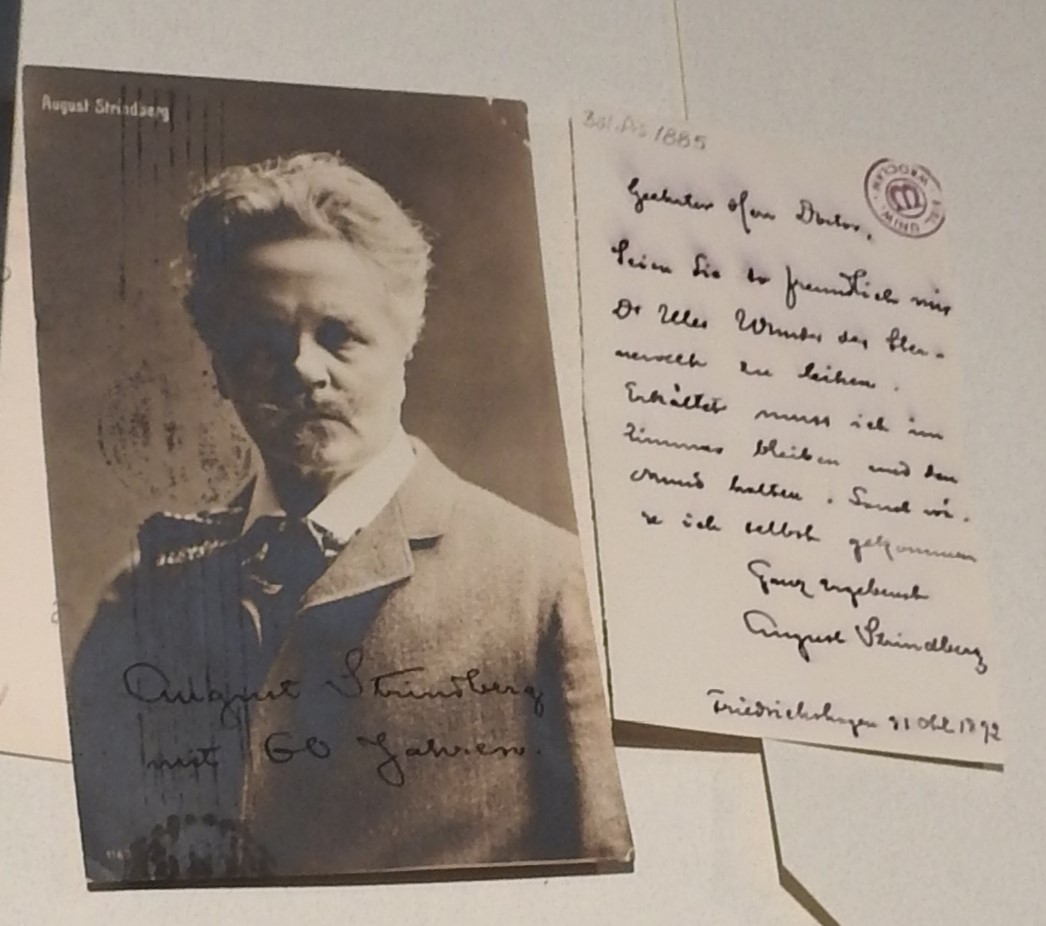 August Strindberg
August Strindberg
mit 60 Jahren.
1885
BIBL. UNIW. WROCŁAW
Geehrter Herr Doctor,
Seien Sie so freundlich mir
Dr Wunder der
zu leihen.
Erkältet muss ich im
Zimmer bleiben und den
Mund halten. Sonst wä-
re ich selbst gekommen
Ganz ergebenst
August Strindberg
Friedrichshagen 31 Okt. 1892